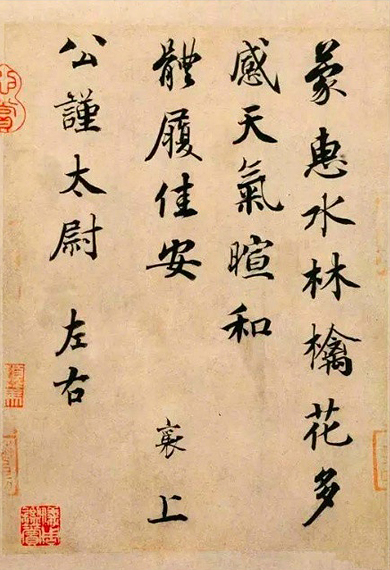 蒙惠水林檎花多
感天氣暄和
體履佳安 襄 上
公謹太尉 左右